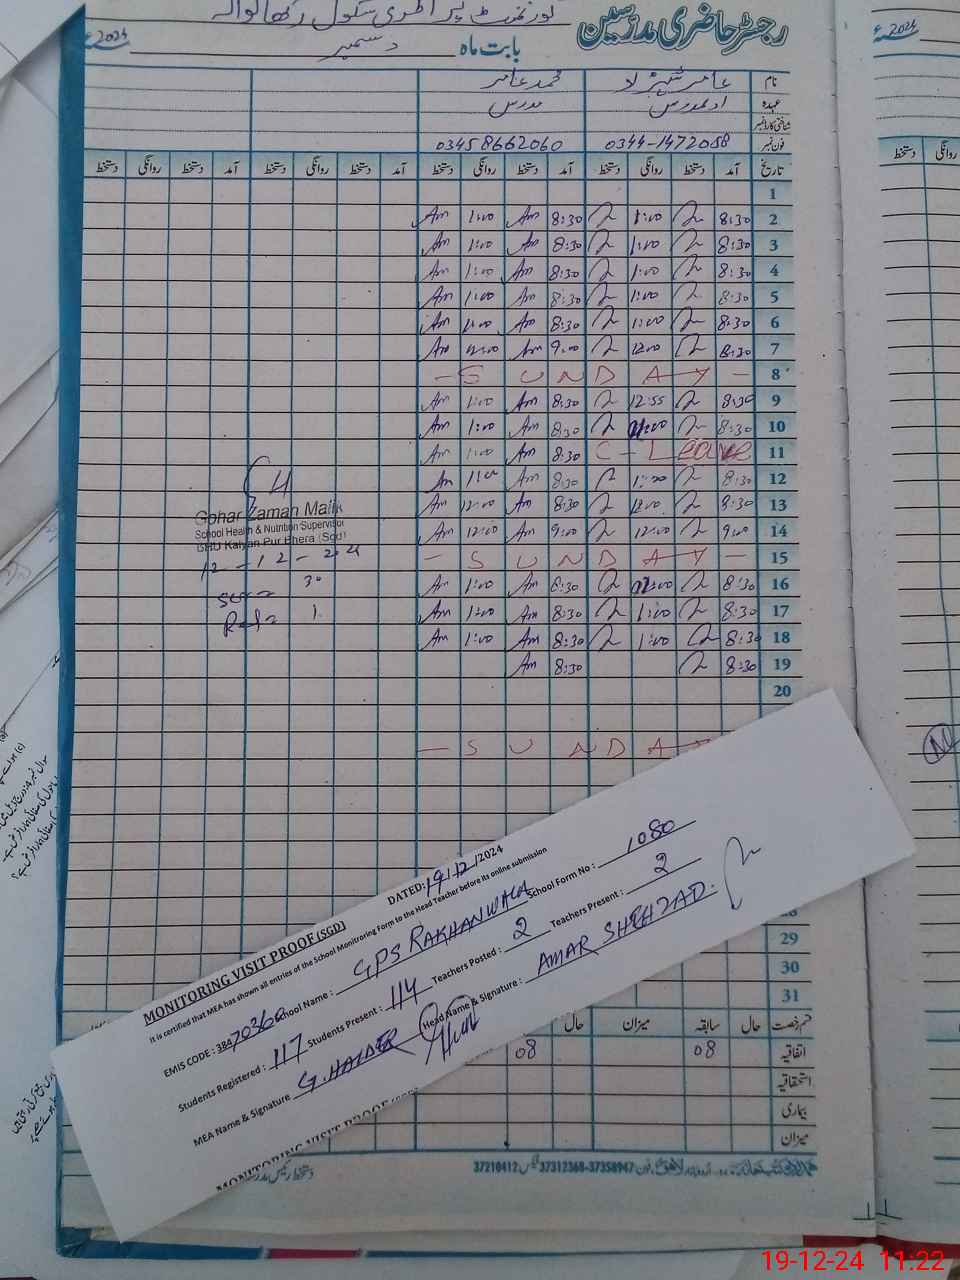 گورنمنٹ پرائمری سکول رکھانوالہ
رجسٹر حاضری مدرسین
بابت ماہ دسمبر 2024ء
2024ء
نام عامر شہزاد محمد عامر
عہدہ مدرس
شناختی کارڈ نمبر
فون نمبر 0344-1472058 03458662060
تاریخ آمد دستخط روانگی دستخط آمد دستخط روانگی دستخط آمد دستخط روانگی دستخط آمد دستخط روانگی دستخط
روانگی دستخط
1
2 8:30 1:00 8:30 Am 1:00 Am
3 8:30 1:00 8:30 Am 1:00 Am
4 8:30 1:00 8:30 Am 1:00 Am
5 8:30 1:00 8:30 Am 1:00 Am
6 8:30 1:00 8:30 Am 1:00 Am
7 8:30 12:00 9:00 Am Am
8 - SUNDAY -
9 8:30 12:55 8:30 Am 1:00 Am
10 8:30 8:30 Am 1:00 Am
11 C-Leave 8:30 Am 1:00 Am
12 8:30 1:00 8:30 Am 1:00 Am
13 8:30 12:00 8:30 Am 12:00 Am
14 9:00 12:00 9:00 Am 12:00 Am
15 - SUNDAY -
16 8:30 8:30 Am 1:00 Am
17 8:30 1:00 8:30 Am 1:00 Am
18 8:30 1:00 8:30 Am 1:00 Am
19 8:30 8:30 Am
20
- SUNDAY
Gohar Zaman Malik
School Health & Nutrition Supervisor
BHU Kalyan Pur Bhera (Sgd)
12-12-2024
30
1
MONITORING VISIT PROOF (SGD)
DATED: 19/12/2024
It is certified that MEA has shown all entries of the School Monitroring Form to the Head Teacher before its online submission
EMIS CODE : 38470360 School Name : GPS RAKHANWALA School Form No : 1080
Students Registered : 117 Students Present : 114 Teachers Posted : 2 Teachers Present : 2
MEA Name & Signature G. HAIDER Head Name & Signature : AMAR SHEHZAD.
MONITORING VISIT PROOF (SGD)
28
29
30
31
قسم رخصت حال سابقہ میزان حال
اتفاقیہ 08 08
استحقاقیہ
بیماری
میزان
دستخط رئیس مدرسہ
اردو بازار لاہور۔ فون 37358947-37312368 فیکس 37210412
19-12-24 11:22